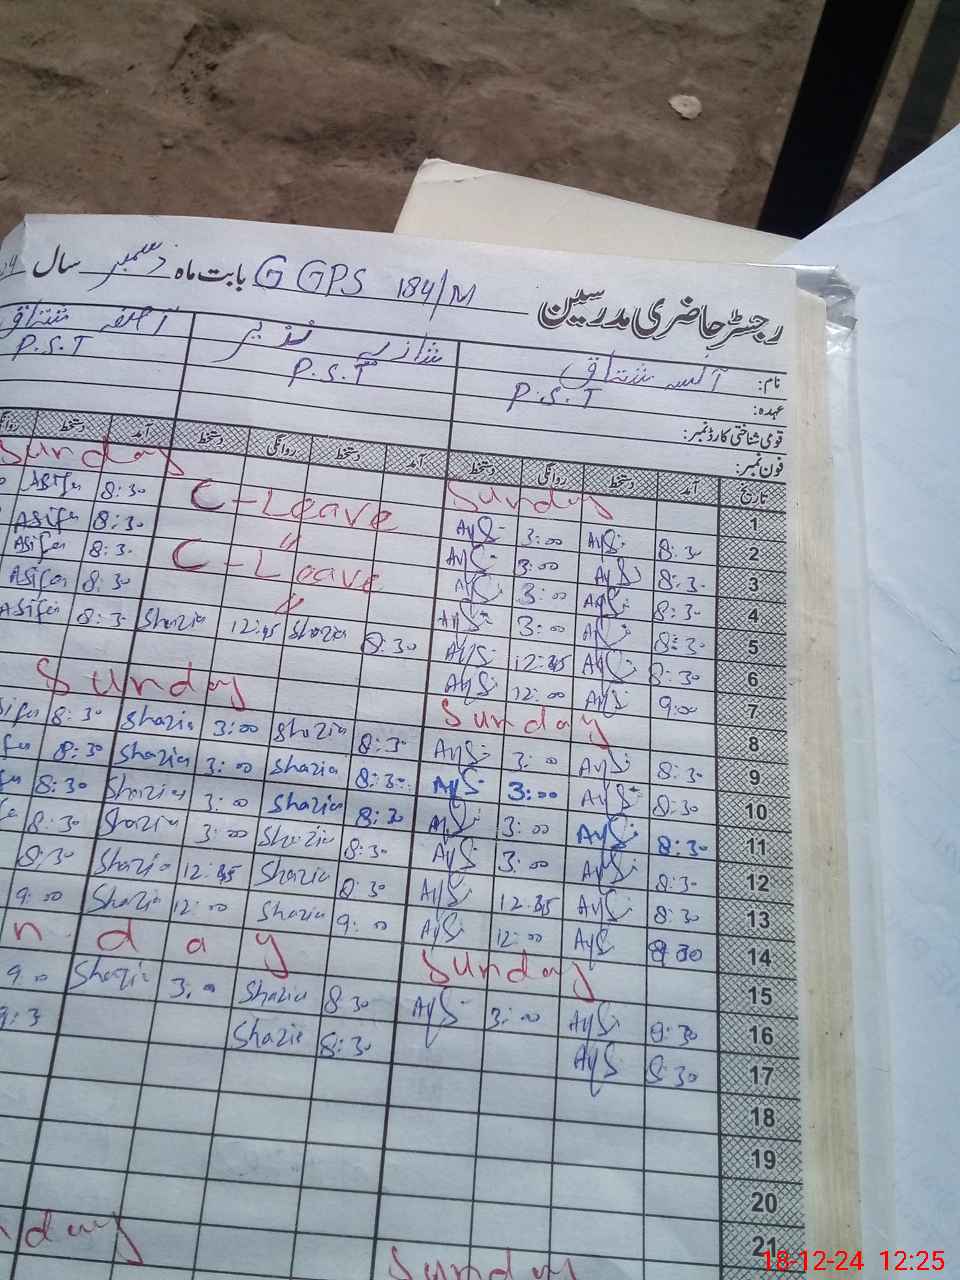 رجسٹر حاضری مدرسین GGPS 184/M بابت ماہ دسمبر سال
نام: آنسہ مشتاق شازیہ نذیر آصفہ مشتاق
عہدہ: P.S.T P.S.T P.S.T
قومی شناختی کارڈ نمبر:
فون نمبر:
تاریخ آمد دستخط روانگی دستخط آمد دستخط روانگی دستخط آمد دستخط
1 Sunday Sunday
2 8:30 AyS 3:00 AyS C-Leave 8:30 Asifa
3 8:30 AyS 3:00 AyS " 8:30 Asifa
4 8:30 AyS 3:00 AyS C-Leave 8:30 Asifa
5 8:30 AyS 3:00 AyS " 8:30 Asifa
6 8:30 AyS 12:45 AyS 8:30 Shazia 12:45 Shazia 8:30 Asifa
7 9:00 AyS 12:00 AyS
8 Sunday Sunday
9 8:30 AyS 3:00 AyS 8:30 Shazia 3:00 Shazia 8:30
10 8:30 AyS 3:00 AyS 8:30 Shazia 3:00 Shazia 8:30
11 8:30 AyS 3:00 AyS 8:30 Shazia 3:00 Shazia 8:30
12 8:30 AyS 3:00 AyS 8:30 Shazia 3:00 Shazia 8:30
13 8:30 AyS 12:45 AyS 8:30 Shazia 12:45 Shazia 8:30
14 8:30 AyS 12:00 AyS 9:00 Shazia 12:00 Shazia 9:00
15 Sunday nday
16 8:30 AyS 3:00 AyS 8:30 Shazia 3:00 Shazia 9:00
17 8:30 AyS 8:30 Shazia
18
19
20
21
Sunday nday
18-12-24 12:25